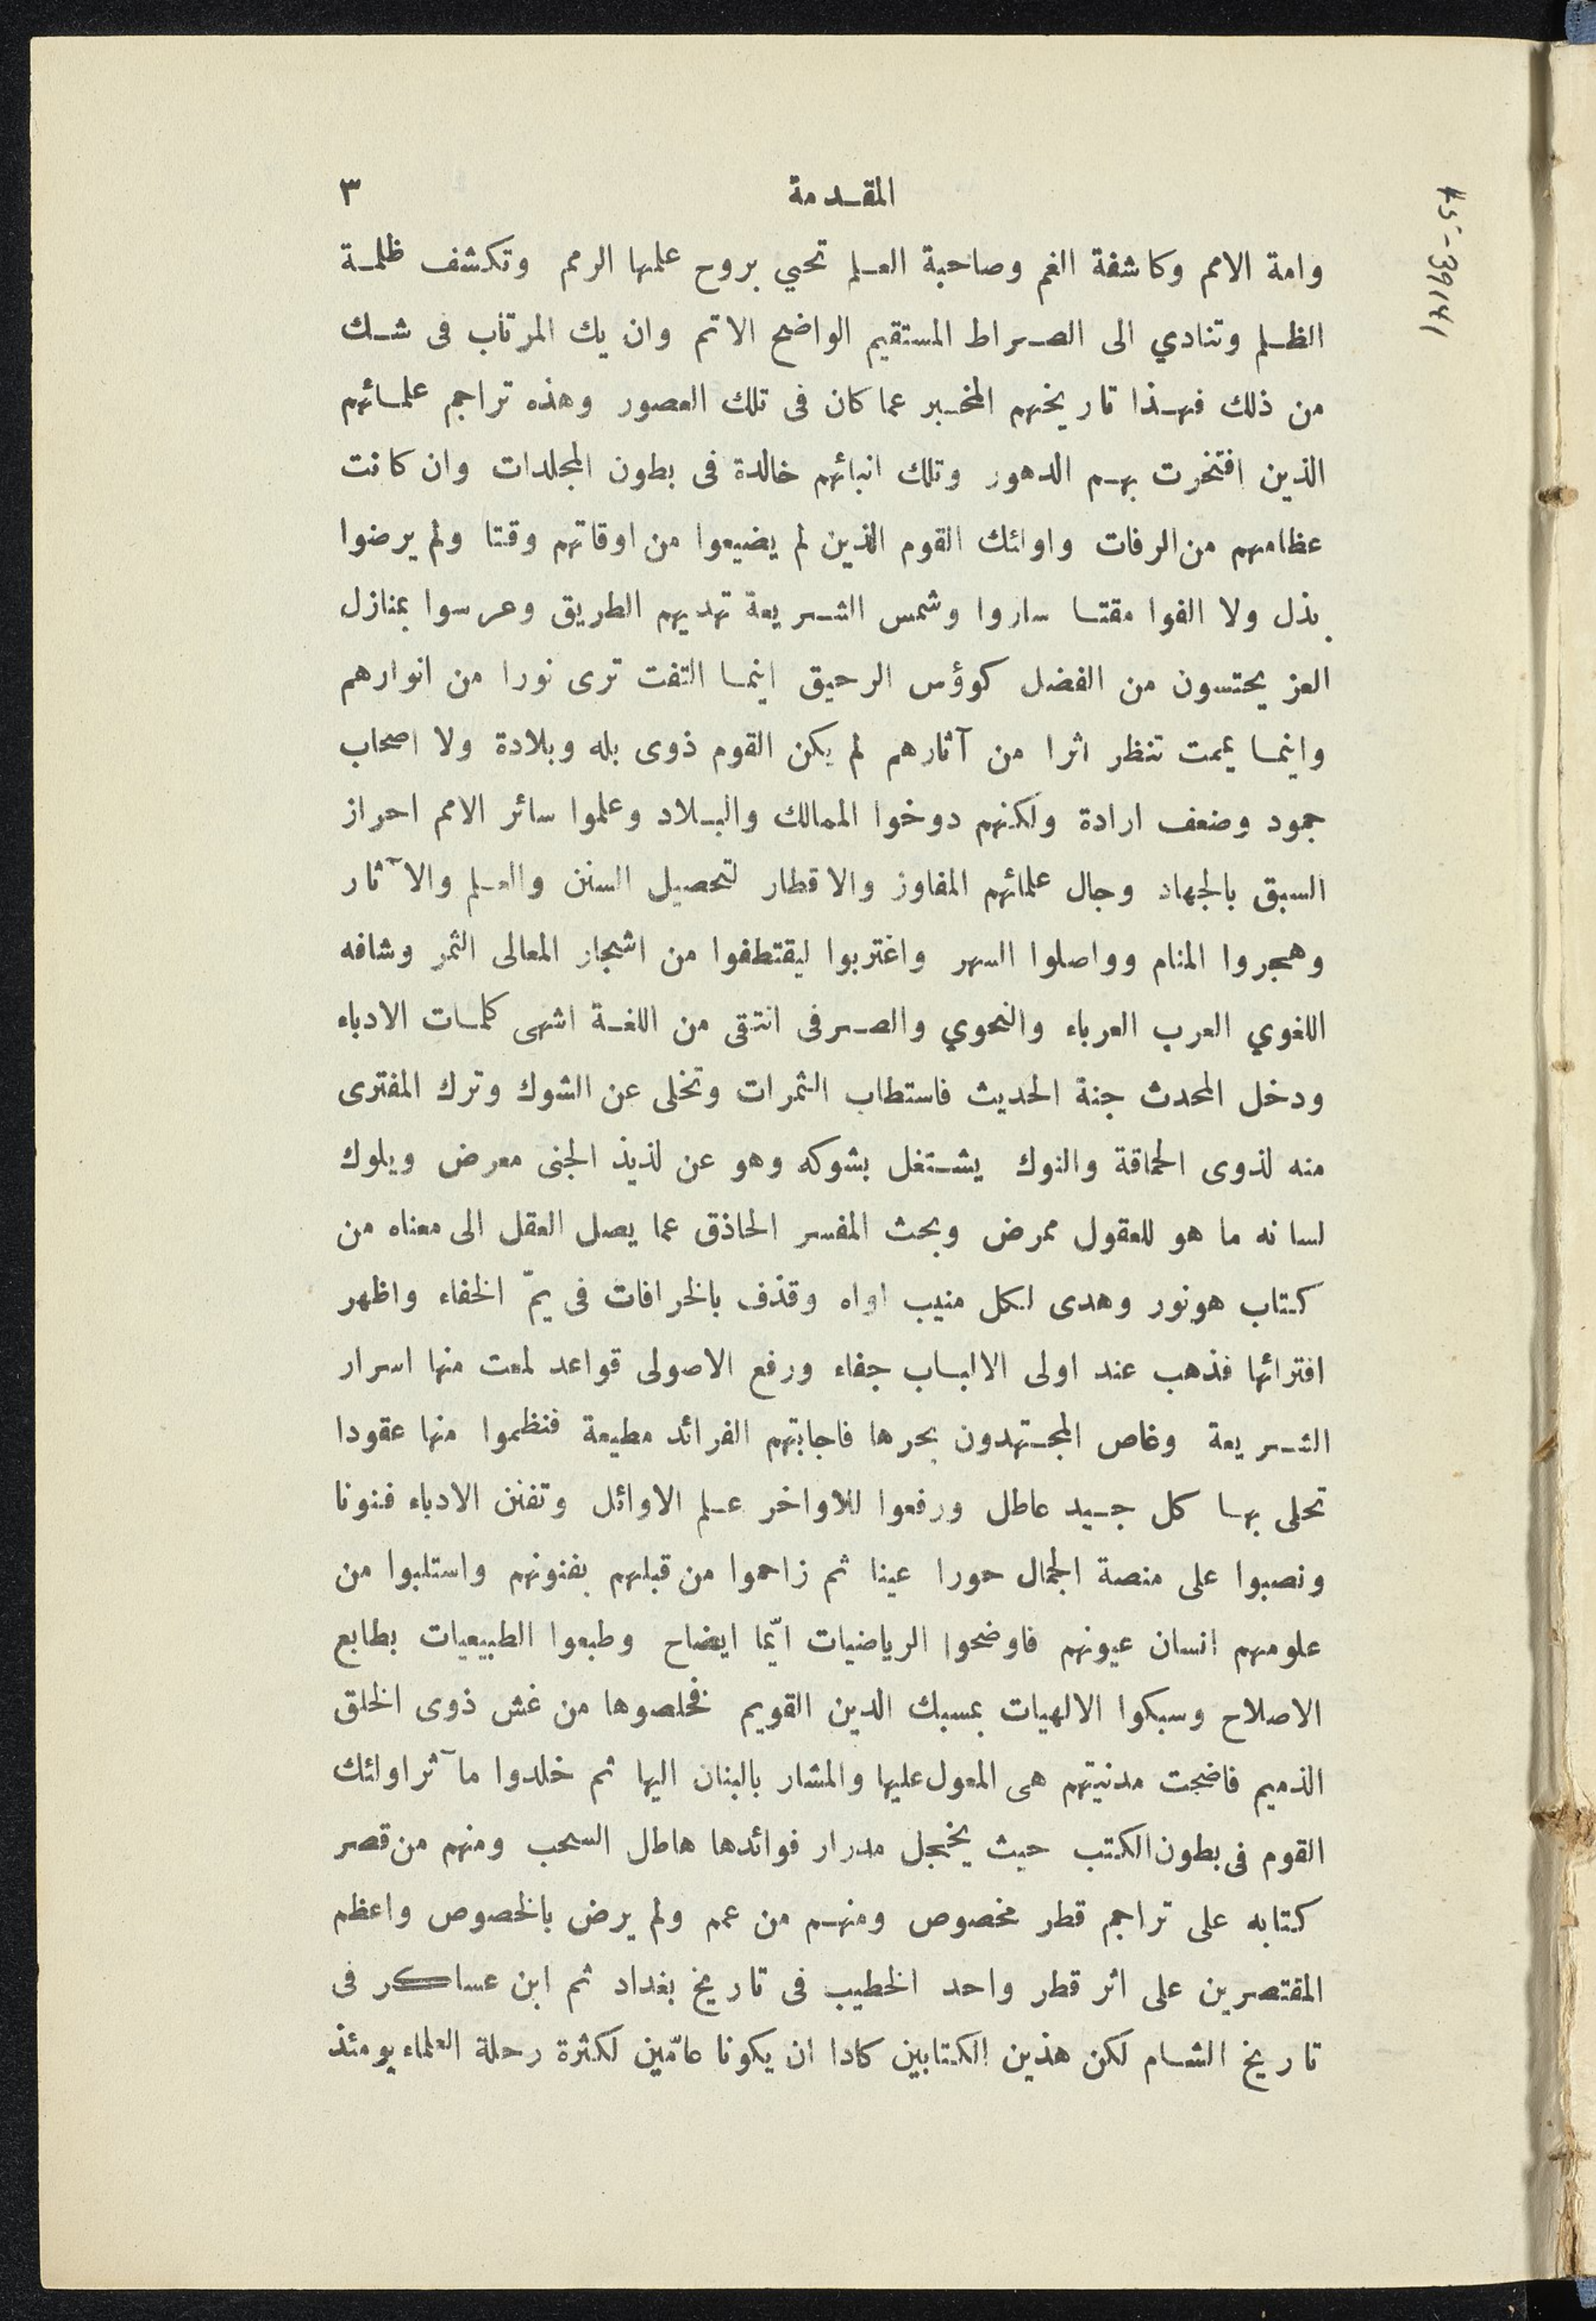 المقدمة ٣
وامة الامم وكاشفة الغم وصاحبة العلم تحيي بروح علمها الرمم وتكشف ظلمة
الظلم وتنادي الى الصراط المستقيم الواضح الاتم وان يك المرتاب فى شك
من ذلك فهذا تاريخهم المخبر عما كان فى تلك العصور وهذه تراجم علمائهم
الذين افتخرت بهم الدهور وتلك انبائهم خالدة فى بطون المجلدات وان كانت
عظامهم من الرفات واوائك القوم الذين لم يضيعوا من اوقاتهم وقتا ولم يرضوا
بذل ولا الفوا مقتا ساروا وشمس الشريعة تهديهم الطريق وعرسوا بمنازل
العز يحتسون من الفضل كوؤس الرحيق اينما التفت ترى نورا من انوارهم
واينما يممت تنظر اثرا من آثارهم لم يكن القوم ذوى بله وبلادة ولا اصحاب
جمود وضعف ارادة ولكنهم دوخوا الممالك والبلاد وعلموا سائر الامم احراز
السبق بالجهاد وجال علمائهم المفاوز والاقطار لتحصيل السنن والعلم والآثار
وهجروا المنام وواصلوا السهر واغتربوا ليقتطفوا من اشجار المعالى الثمر وشافه
اللغوي العرب العرباء والنحوي والصرفى انتقى من اللغة اشهى كلمات الادباء
ودخل المحدث جنة الحديث فاستطاب الثمرات وتخلى عن الشوك وترك المفترى
منه لذوى الحماقة والنوك يشتغل بشوكه وهو عن لذيذ الجنى معرض ويلوك
لسانه ما هو للعقول ممرض وبحث المفسر الحاذق عما يصل العقل الى معناه من
كتاب هونور وهدى لكل منيب اواه وقذف بالخرافات فى يمّ الخفاء واظهر
افترائها فذهب عند اولى الالباب جفاء ورفع الاصولى قواعد لمعت منها اسرار
الشريعة وغاص المجتهدون بحرها فاجابتهم الفرائد مطيعة فنظموا منها عقودا
تحلى بها كل جيد عاطل ورفعوا للاواخر علم الاوائل وتفنن الادباء فنونا
ونصبوا على منصة الجمال حورا عينا ثم زاحموا من قبلهم بفنونهم واستلبوا من
علومهم انسان عيونهم فاوضحوا الرياضيات ايّما ايضاح وطبعوا الطبيعيات بطابع
الاصلاح وسبكوا الالهيات بمسبك الدين القويم فخلصوها من غش ذوى الخلق
الذميم فاضحت مدنيتهم هى المعول عليها والمشار بالبنان اليها ثم خلدوا مآثر اولئك
القوم فى بطون الكتب حيث يخجل مدرار فوائدها هاطل السحب ومنهم من قصر
كتابه على تراجم قطر مخصوص ومنهم من عمم ولم يرض بالخصوص واعظم
المقتصرين على اثر قطر واحد الخطيب فى تاريخ بغداد ثم ابن عساكر فى
تاريخ الشام لكن هذين الكتابين كادا ان يكونا عامّين لكثرة رحلة العلماء يومئذ